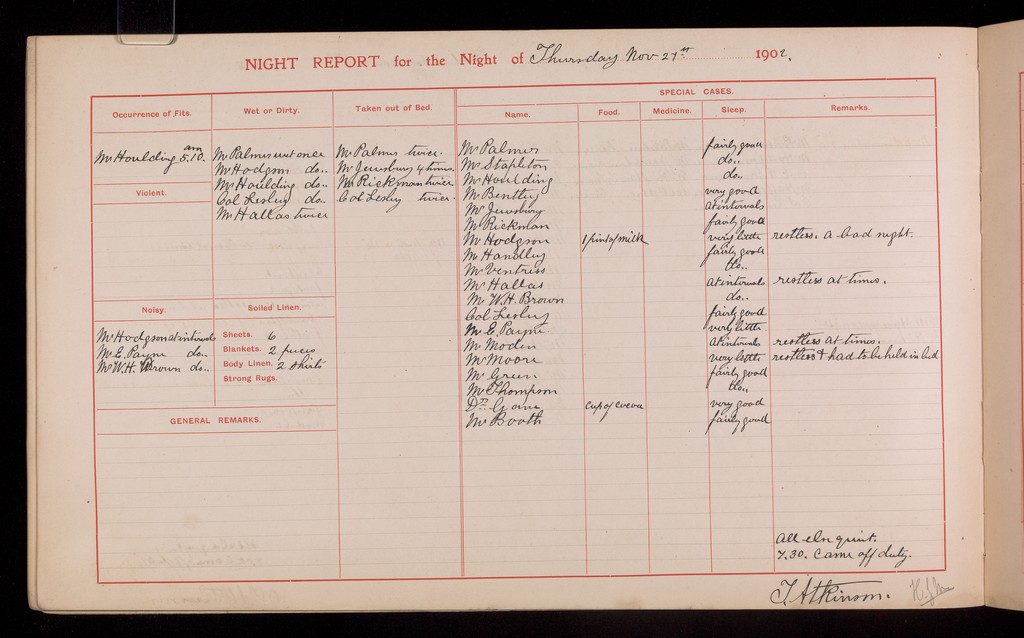 NIGHT REPORT for the Night of Thursday Nov 27th 1902.
SPECIAL CASES.
Occurrence of Fits. Wet or Dirty. Taken out of Bed. Name. Food. Medicine. Sleep. Remarks.
Mr Houlding 5.10. am
Violent.
Noisy.
Mr Hodgson at intervals
Mr E. Payne do..
Mr W.H. Brown do..
Mr Palmer wet once
Mr Hodgson do..
Mr Houlding do..
Col Lesley do..
Mr Hallas twice
Soiled Linen.
Sheets. 6
Blankets. 2 pieces
Body Linen. 2 shirts
Strong Rugs.
GENERAL REMARKS.
Mr Palmer twice.
Mr Jewsbury 4 times.
Mr Rickman twice
Col Lesley twice.
Mr Palmer fairly good
Mr Stapleton do..
Mr Houlding do..
Mr Bentley very good
Mr Jewsbury at intervals
Mr Rickman fairly good
Mr Hodgson 1 pint of milk very little restless. a bad night.
Mr Handley fairly good
Mr Ventriss do..
Mr Hallas at intervals restless at times.
Mr W.H. Brown do..
Col Lesley fairly good
Mr E. Payne very little
Mr Moden at intervals restless at times.
Mr Moore very little restless & had to be held in bed
Mr Green fairly good
Mr Thompson do..
Dr cup of cocoa very good
Mr Booth fairly good
All else quiet.
7.30. Came off duty.
T Atkinson.